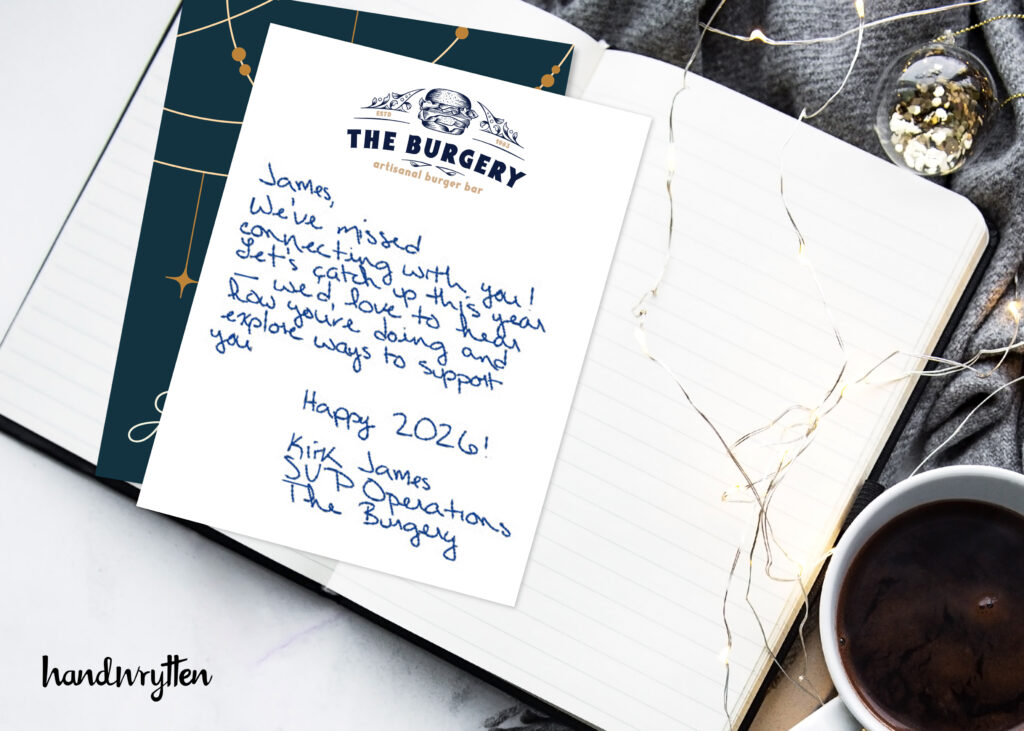 ESTD 1963
THE BURGERY
artisanal burger bar
James,
We've missed
connecting with you!
Let's catch up this year
— we'd love to hear
how you're doing and
explore ways to support
you
Happy 2026!
Kirk James
SVP Operations
The Burgery
handwrytten